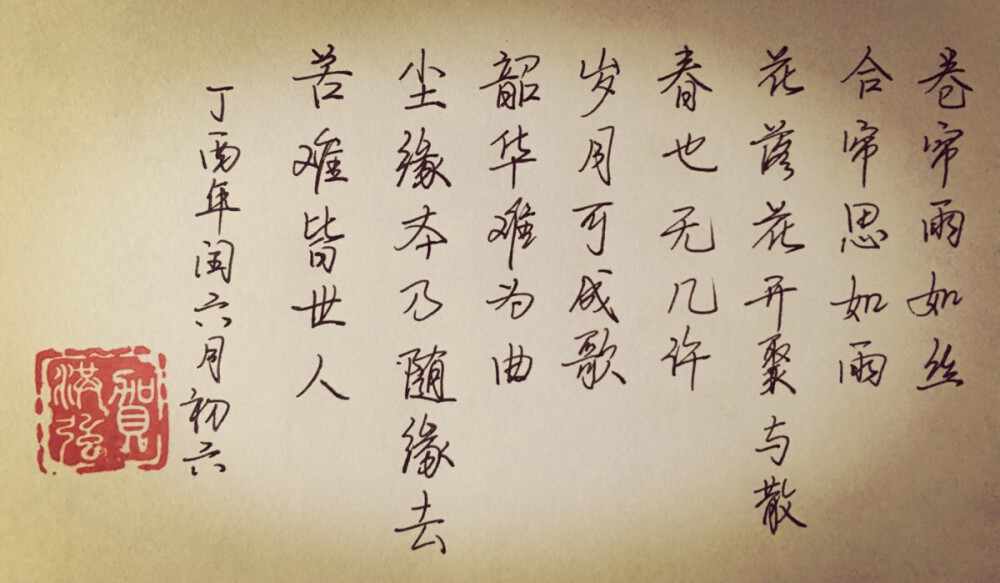 卷帘雨如丝
合帘思如雨
花落花开聚与散
春也无几许
岁月可成歌
韶华难为曲
尘缘本乃随缘去
苦难皆世人
丁酉年闰六月初六
贺洪弦